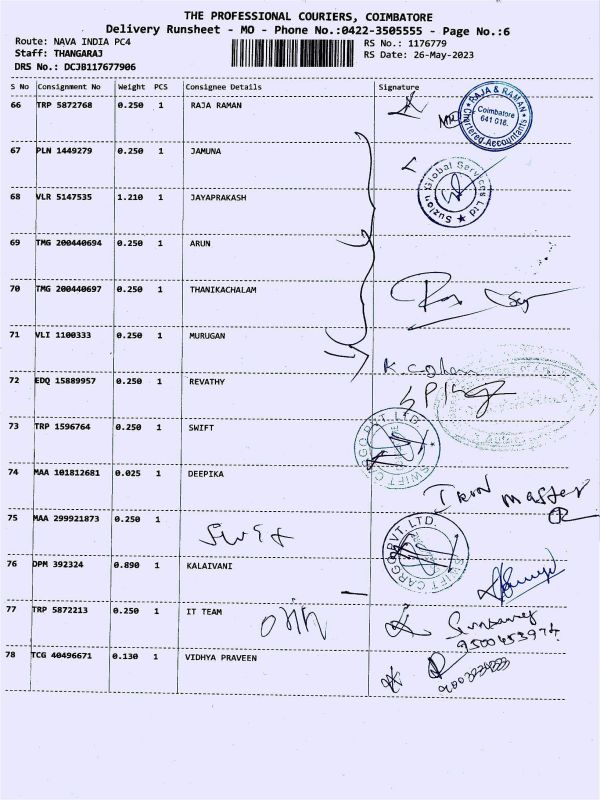 THE PROFESSIONAL COURIERS, COIMBATORE
Delivery Runsheet - MO - Phone No.:0422-3505555 - Page No.:6
Route: NAVA INDIA PC4 RS No.: 1176779
Staff: THANGARAJ RS Date: 26-May-2023
DRS No.: DCJB117677906
S No Consignment No Weight PCS Consignee Details Signature
66 TRP 5872768 0.250 1 RAJA RAMAN
RAJA & RAMAN Coimbatore 641 018. Chartered Accountants
67 PLN 1449279 0.250 1 JAMUNA
Suzlon Global Services Ltd
68 VLR 5147535 1.210 1 JAYAPRAKASH
69 TMG 200440694 0.250 1 ARUN
70 TMG 200440697 0.250 1 THANIKACHALAM
71 VLI 1100333 0.250 1 MURUGAN
72 EDQ 15889957 0.250 1 REVATHY
73 TRP 1596764 0.250 1 SWIFT
SWIFT CARGO PVT. LTD.
74 MAA 101812681 0.025 1 DEEPIKA
75 MAA 299921873 0.250 1 Swift
SWIFT CARGO PVT. LTD.
76 DPM 392324 0.890 1 KALAIVANI
77 TRP 5872213 0.250 1 IT TEAM
9500453974
78 TCG 40496671 0.130 1 VIDHYA PRAVEEN